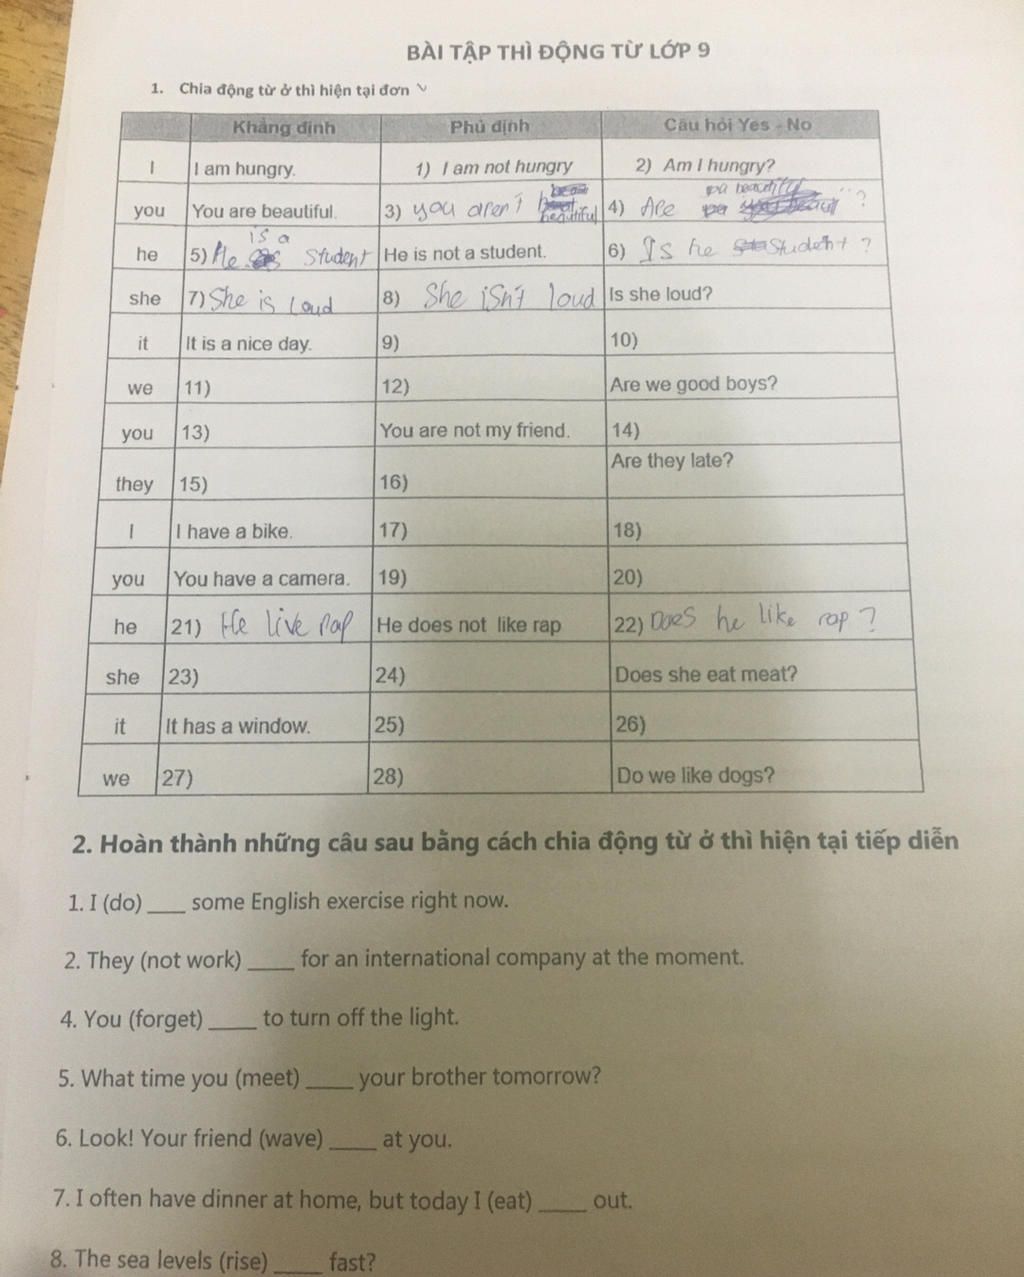 BÀI TẬP THÌ ĐỘNG TỪ LỚP 9
1. Chia động từ ở thì hiện tại đơn
Khẳng định Phủ định Câu hỏi Yes - No
I I am hungry. 1) I am not hungry 2) Am I hungry?
you You are beautiful. 3) you aren't beautiful 4) Are ?
he 5) He is a student He is not a student. 6) Is he student ?
she 7) She is loud 8) She isn't loud Is she loud?
it It is a nice day. 9) 10)
we 11) 12) Are we good boys?
you 13) You are not my friend. 14)
they 15) 16) Are they late?
I I have a bike. 17) 18)
you You have a camera. 19) 20)
he 21) He live rap He does not like rap 22) Does he like rap ?
she 23) 24) Does she eat meat?
it It has a window. 25) 26)
we 27) 28) Do we like dogs?
2. Hoàn thành những câu sau bằng cách chia động từ ở thì hiện tại tiếp diễn
1. I (do) ____ some English exercise right now.
2. They (not work) ____ for an international company at the moment.
4. You (forget) ____ to turn off the light.
5. What time you (meet) ____ your brother tomorrow?
6. Look! Your friend (wave) ____ at you.
7. I often have dinner at home, but today I (eat) ____ out.
8. The sea levels (rise) ____ fast?